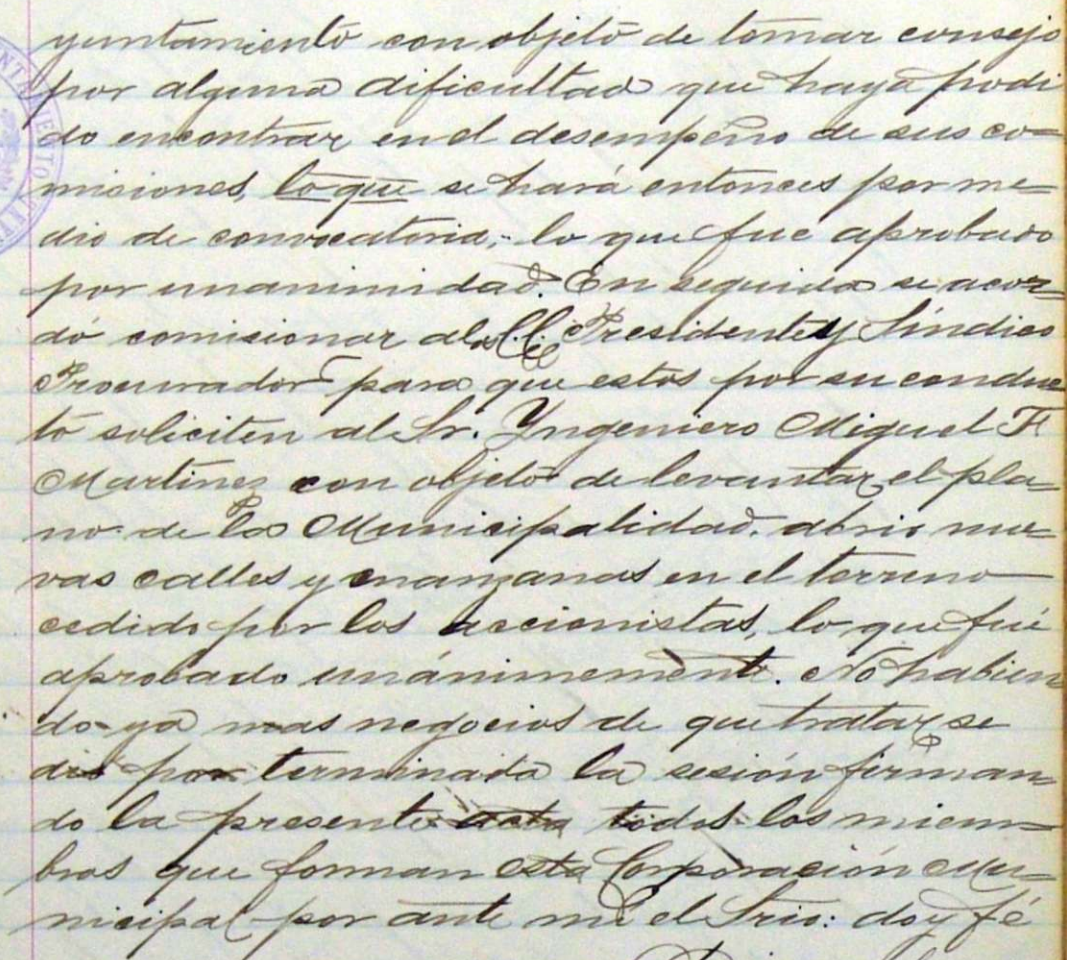 yuntamiento con objeto de tomar consejo
por alguna dificultad que haya podi
do encontrar en el desempeño de sus co=
misiones, lo que se hará entonces por me=
dio de convocatoria, lo que fue aprobado
por unanimidad. En seguida se acor=
dó comisionar a los C.C. Presidente y Síndico
Procurador para que estos por su conduc
to soliciten al Sr. Yngeniero Miguel F.
Martínez con objeto de levantar el pla=
no de la Municipalidad, abrir nue=
vas calles y manzanas en el terreno
cedido por los accionistas, lo que fué
aprobado unánimemente. No habien
do ya mas negocios de que tratar se
dió por terminada la sesión firman=
do la presente acta todos los miem=
bros que forman esta Corporación Mu=
nicipal por ante mi el Srio: doy fé